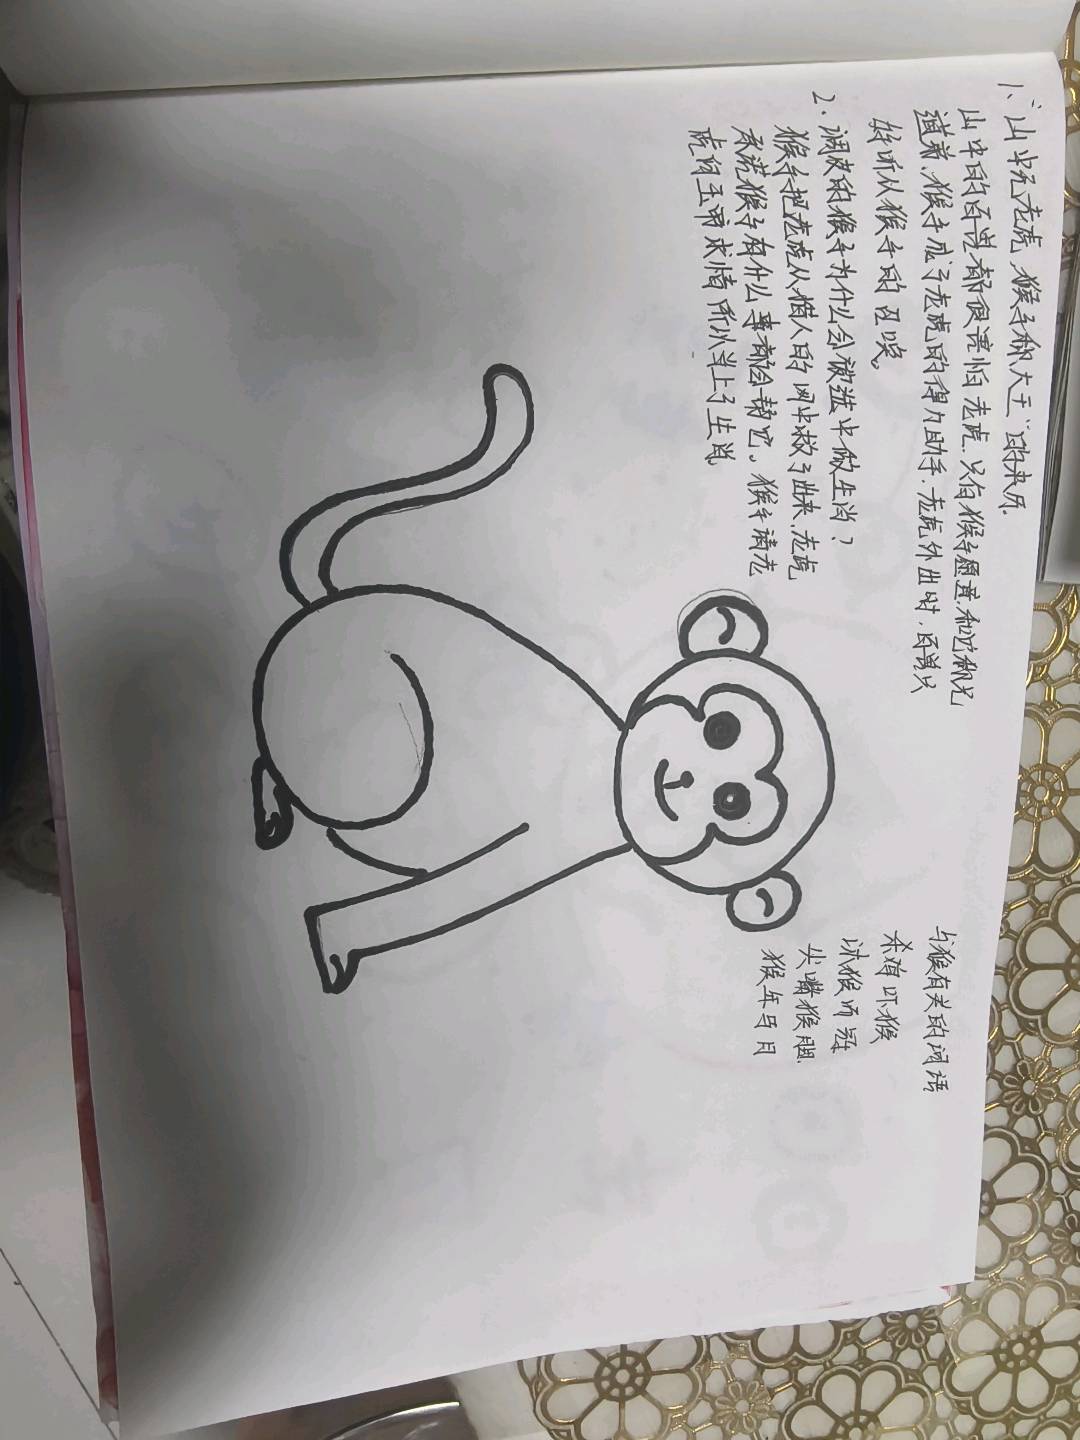 1、"山中无老虎，猴子称大王"的来历.
山中的百兽都很害怕老虎.只有猴子愿意和它称兄
道弟.猴子成了老虎的得力助手.老虎外出时，百兽只
好听从猴子的召唤。
2、调皮的猴子为什么会被选中做生肖？
猴子把老虎从猎人的网中救了出来.老虎
承诺猴子有什么事都会帮它。猴子请老
虎向玉帝求情所以当上了生肖
与猴有关的词语
杀鸡吓猴
沐猴而冠
尖嘴猴腮
猴年马月